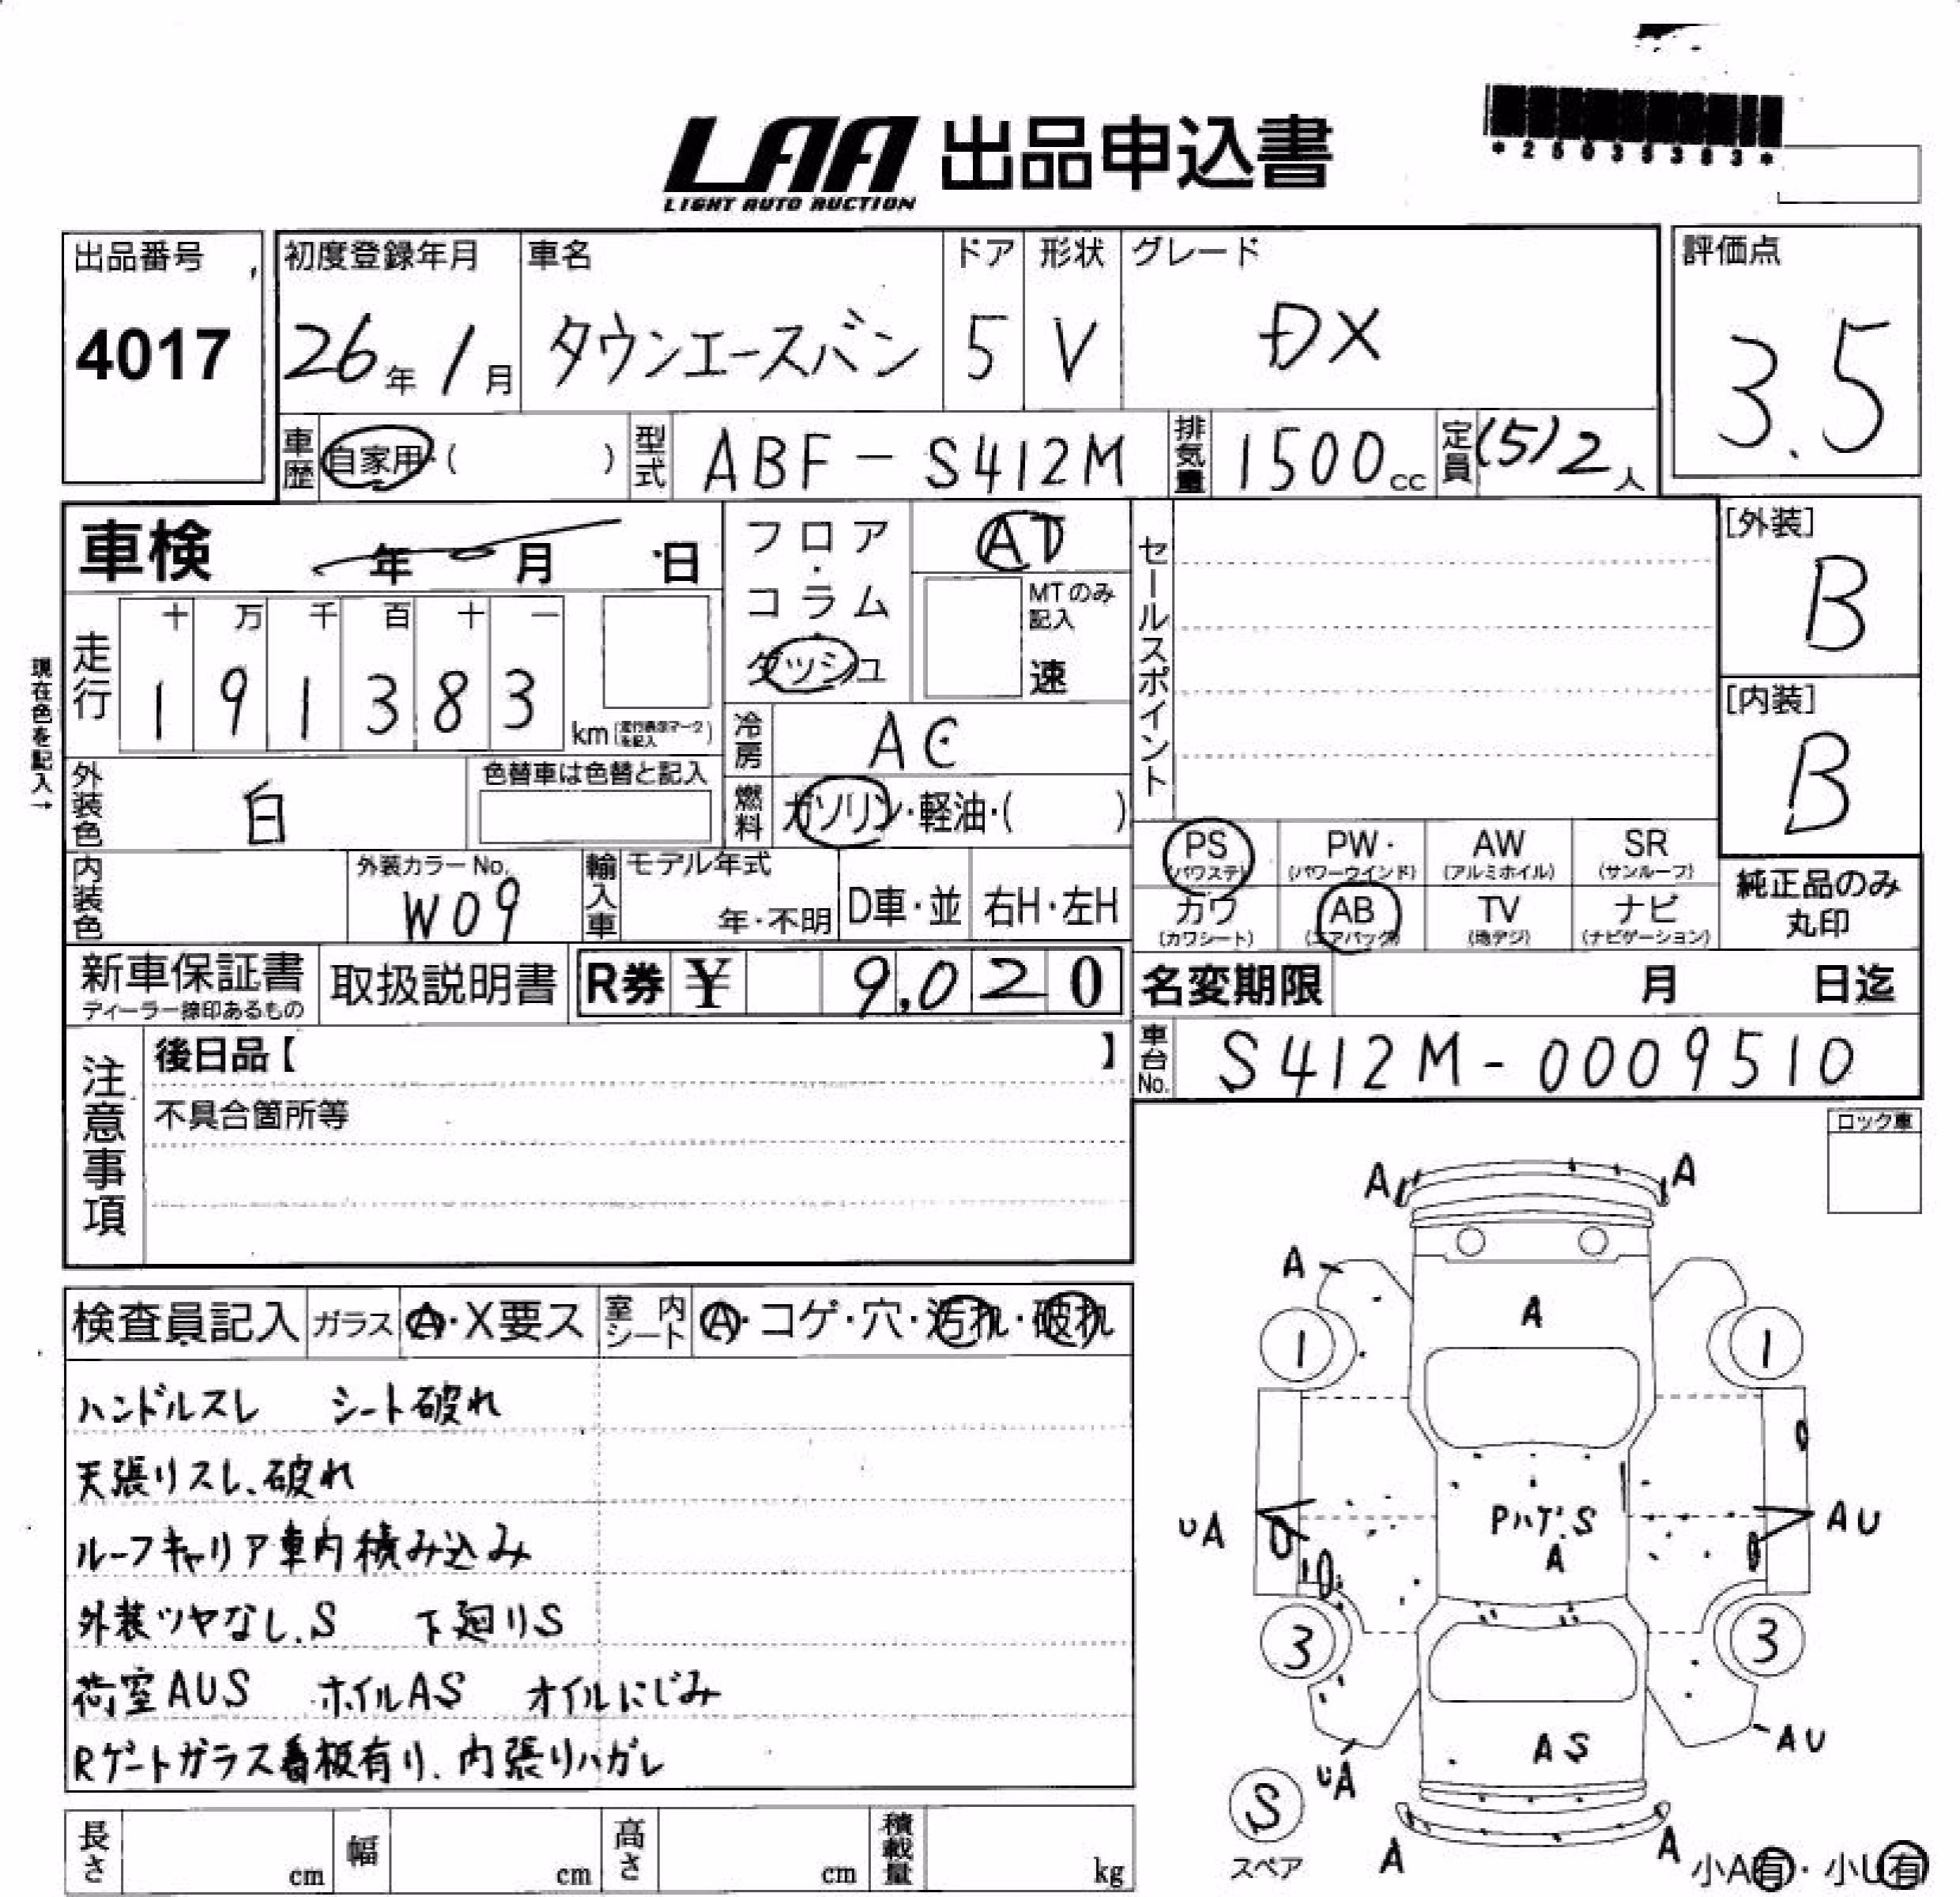 *25035383*
LAA 出品申込書
LIGHT AUTO AUCTION
出品番号
4017
初度登録年月
26年1月
車名
タウンエースバン
ドア
5
形状
V
グレード
DX
評価点
3.5
車歴
自家用・( )
型式
ABF-S412M
排気量
1500cc
定員
(5)2人
車検
年 月 日
フロア・コラム・ダッシュ
AT
MTのみ記入
速
セールスポイント
[外装]
B
[内装]
B
現在色を記入→
走行
十 万 千 百 十 一
1 9 1 3 8 3
km(走行表示マークを記入)
冷房
AC
外装色
白
色替車は色替と記入
燃料
ガソリン・軽油・( )
PS (パワステ)
PW・ (パワーウインド)
AW (アルミホイル)
SR (サンルーフ)
カワ (カワシート)
AB (エアバック)
TV (地デジ)
ナビ (ナビゲーション)
純正品のみ丸印
内装色
外装カラーNo.
W09
輸入車
モデル年式
年・不明
D車・並
右H・左H
新車保証書
ディーラー捺印あるもの
取扱説明書
R券 ¥ 9,020
名変期限 月 日迄
車台No.
S412M-0009510
注意事項
後日品【 】
不具合箇所等
ロック車
検査員記入
ガラス
A・X要ス
室内シート
A・コゲ・穴・汚れ・破れ
ハンドルスレ シート破れ
天張りスレ、破れ
ルーフキャリア車内積み込み
外装ツヤなし、S 下廻りS
荷室AUS ホイルAS オイルにじみ
Rゲートガラス看板有り、内張りハガレ
A A
A
A
1 1
PハゲS
A
UA
AU
3 3
AS
AU
UA
S
スペア
A A
小A有・小U有
長さ cm
幅 cm
高さ cm
積載量 kg